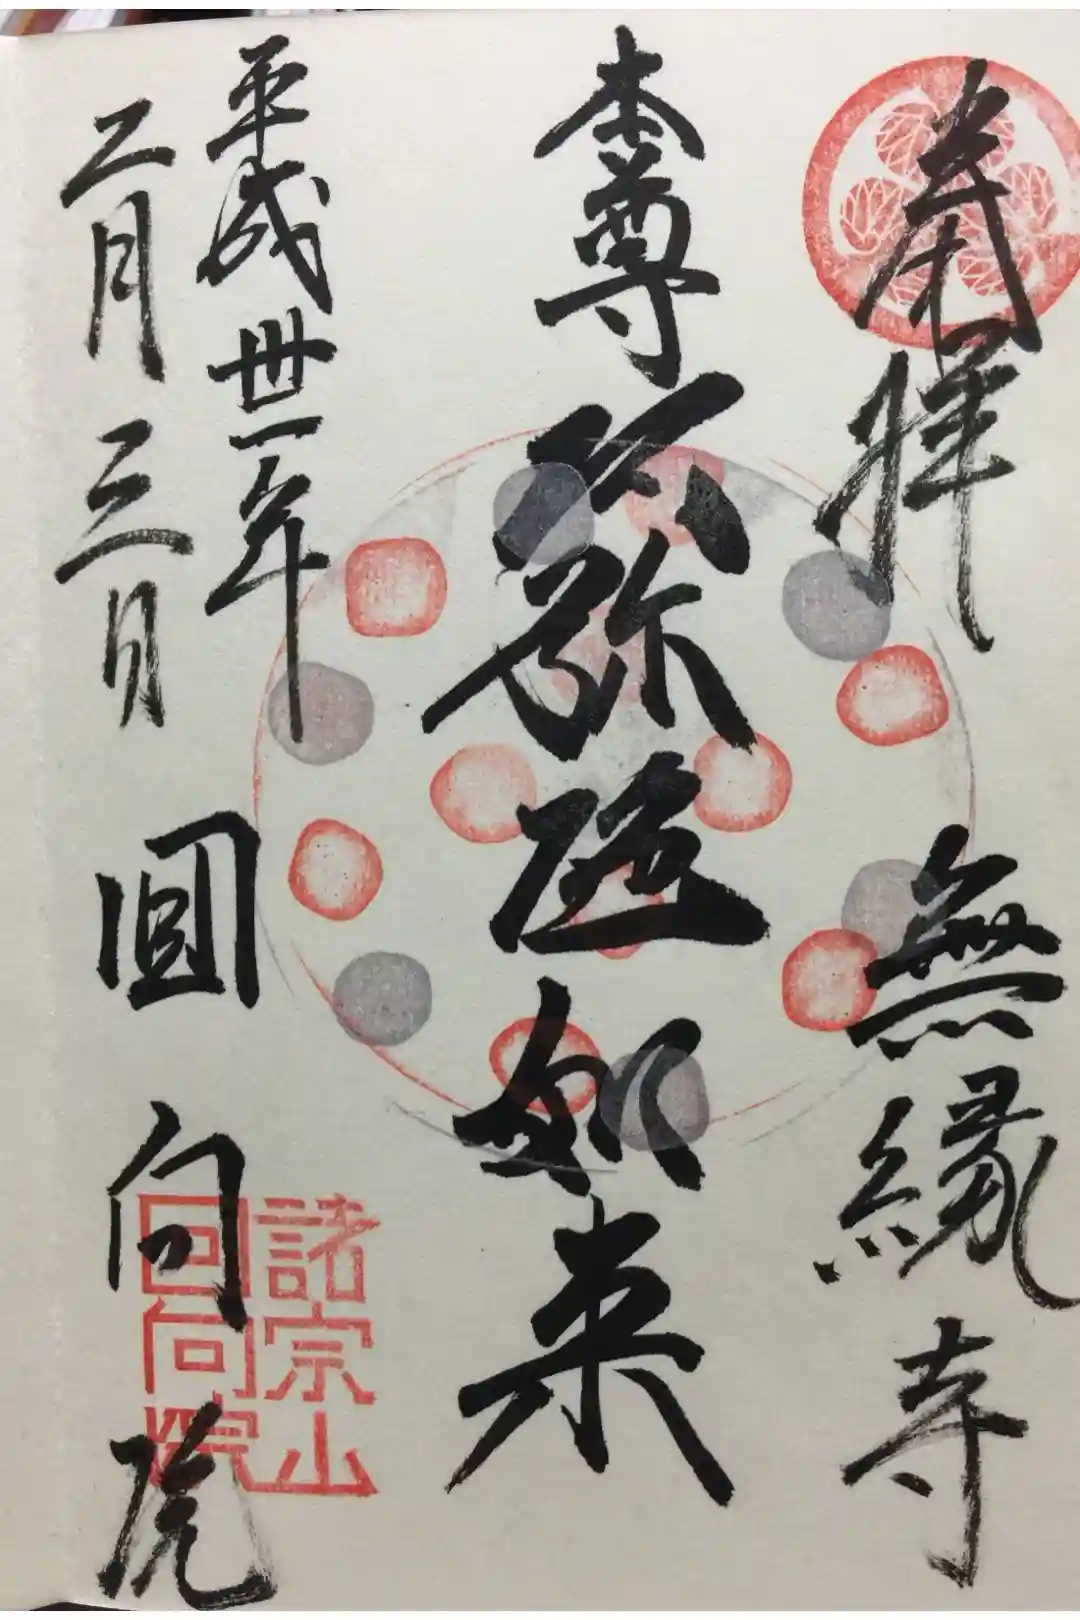 奉拝　無縁寺
本尊　阿弥陀如来
平成丗一年
二月三日　回向院
諸宗山
回向院